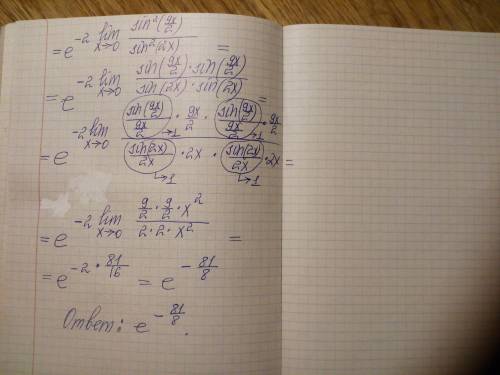 = e^{-2 \lim_{x→0} \frac{sin²(\frac{9x}{2})}{sin²(2x)}} =
= e^{-2 \lim_{x→0} \frac{sin(\frac{9x}{2}) · sin(\frac{9x}{2})}{sin(2x) · sin(2x)}} =
= e^{-2 \lim_{x→0} \frac{\frac{sin(\frac{9x}{2})}{\frac{9x}{2}}→1 · \frac{9x}{2} · \frac{sin(\frac{9x}{2})}{\frac{9x}{2}}→1 · \frac{9x}{2}}{\frac{sin(2x)}{2x}→1 · 2x · \frac{sin(2x)}{2x}→1 · 2x}} =
= e^{-2 \lim_{x→0} \frac{\frac{9}{2} · \frac{9}{2} · x²}{2 · 2 · x²}} =
= e^{-2 · \frac{81}{16}} = e^{-\frac{81}{8}}
Ответ: e^{-\frac{81}{8}}.